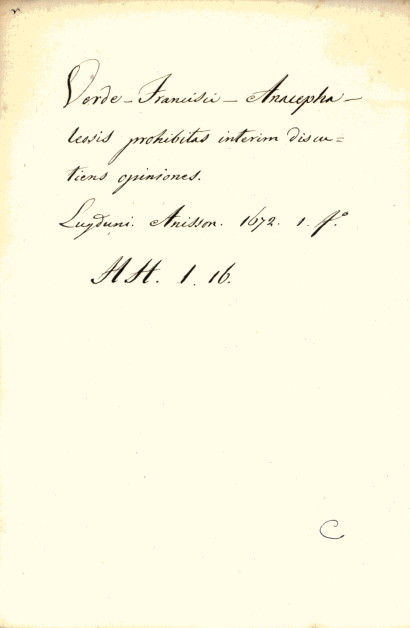 Verde - Francisci - Anacepha-
leosis prohibitas interim discu=
tiens opiniones.
Lugduni. Anisson. 1672. 1. fº
HH. 1. 16.
C